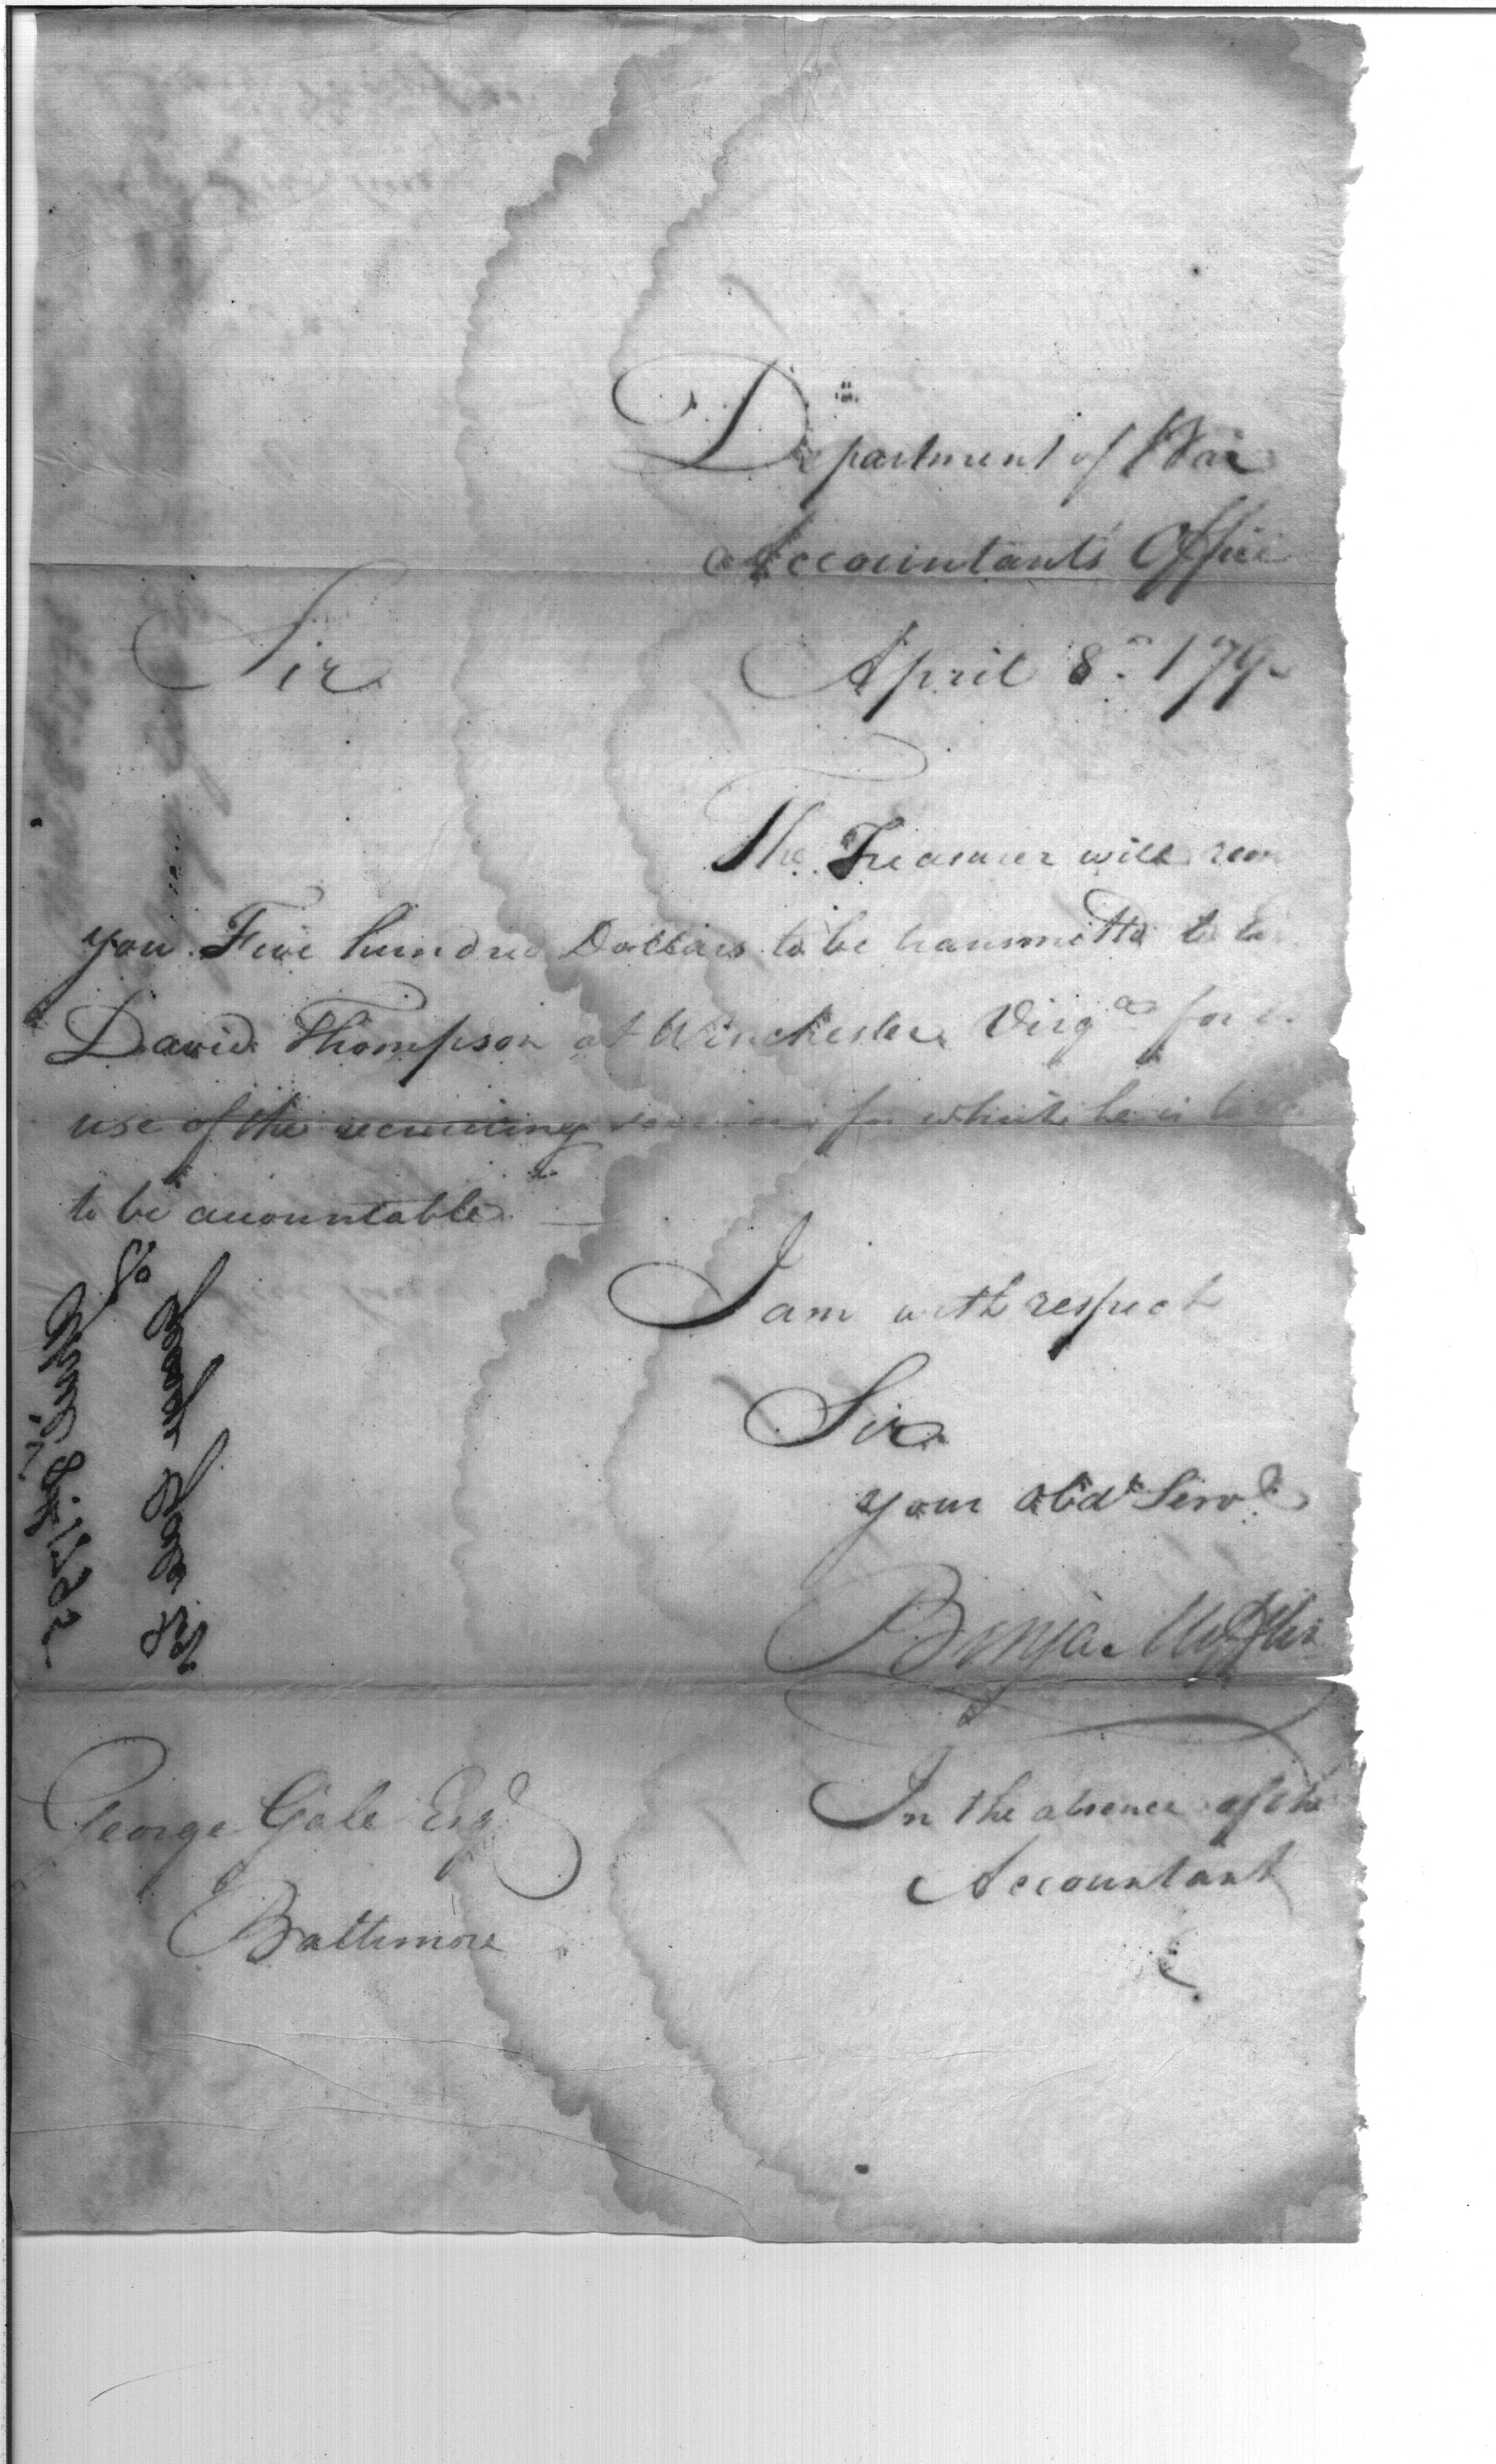 Department of War
Accountants Office
Sir
April 8th 179
The Treasurer will
you Five hundred Dollars to be transmitted to
David Thompson at Winchester Virga for
use of the recruiting service for which he is
to be accountable
I am with respect
Sir
your Obdt Servt
Benja. Mifflin
In the absence of the
Accountant
George Gale Esqr
Baltimore